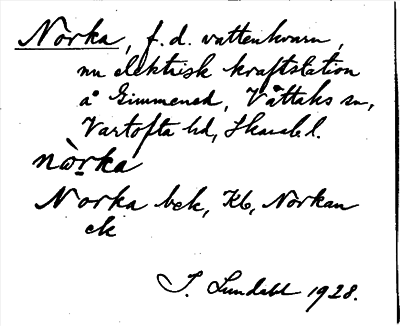 Norka, f. d. vattenkvarn,
nu elektisk kraftstation
å Gimmened, Våttaks sn,
Vartofta hd, Skarab l.
nòrka
Norka bek, Kb, Norkan
ek
S. Lundahl 1928.